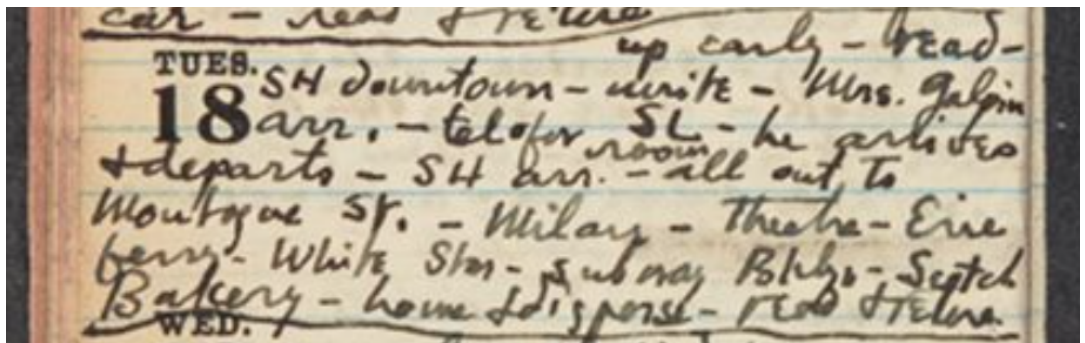 car - read & retire
up early - read -
TUES.
SH downtown - write - Mrs. Galpin
18 arr. - tel. for SL - he arrives
room
& departs - SH arr. - all out to
Montague St. - Milan - Theatre - Erie
ferry - White Star - subway Bldgs - Scotch
Bakery - home & disperse - read & retire.
WED.